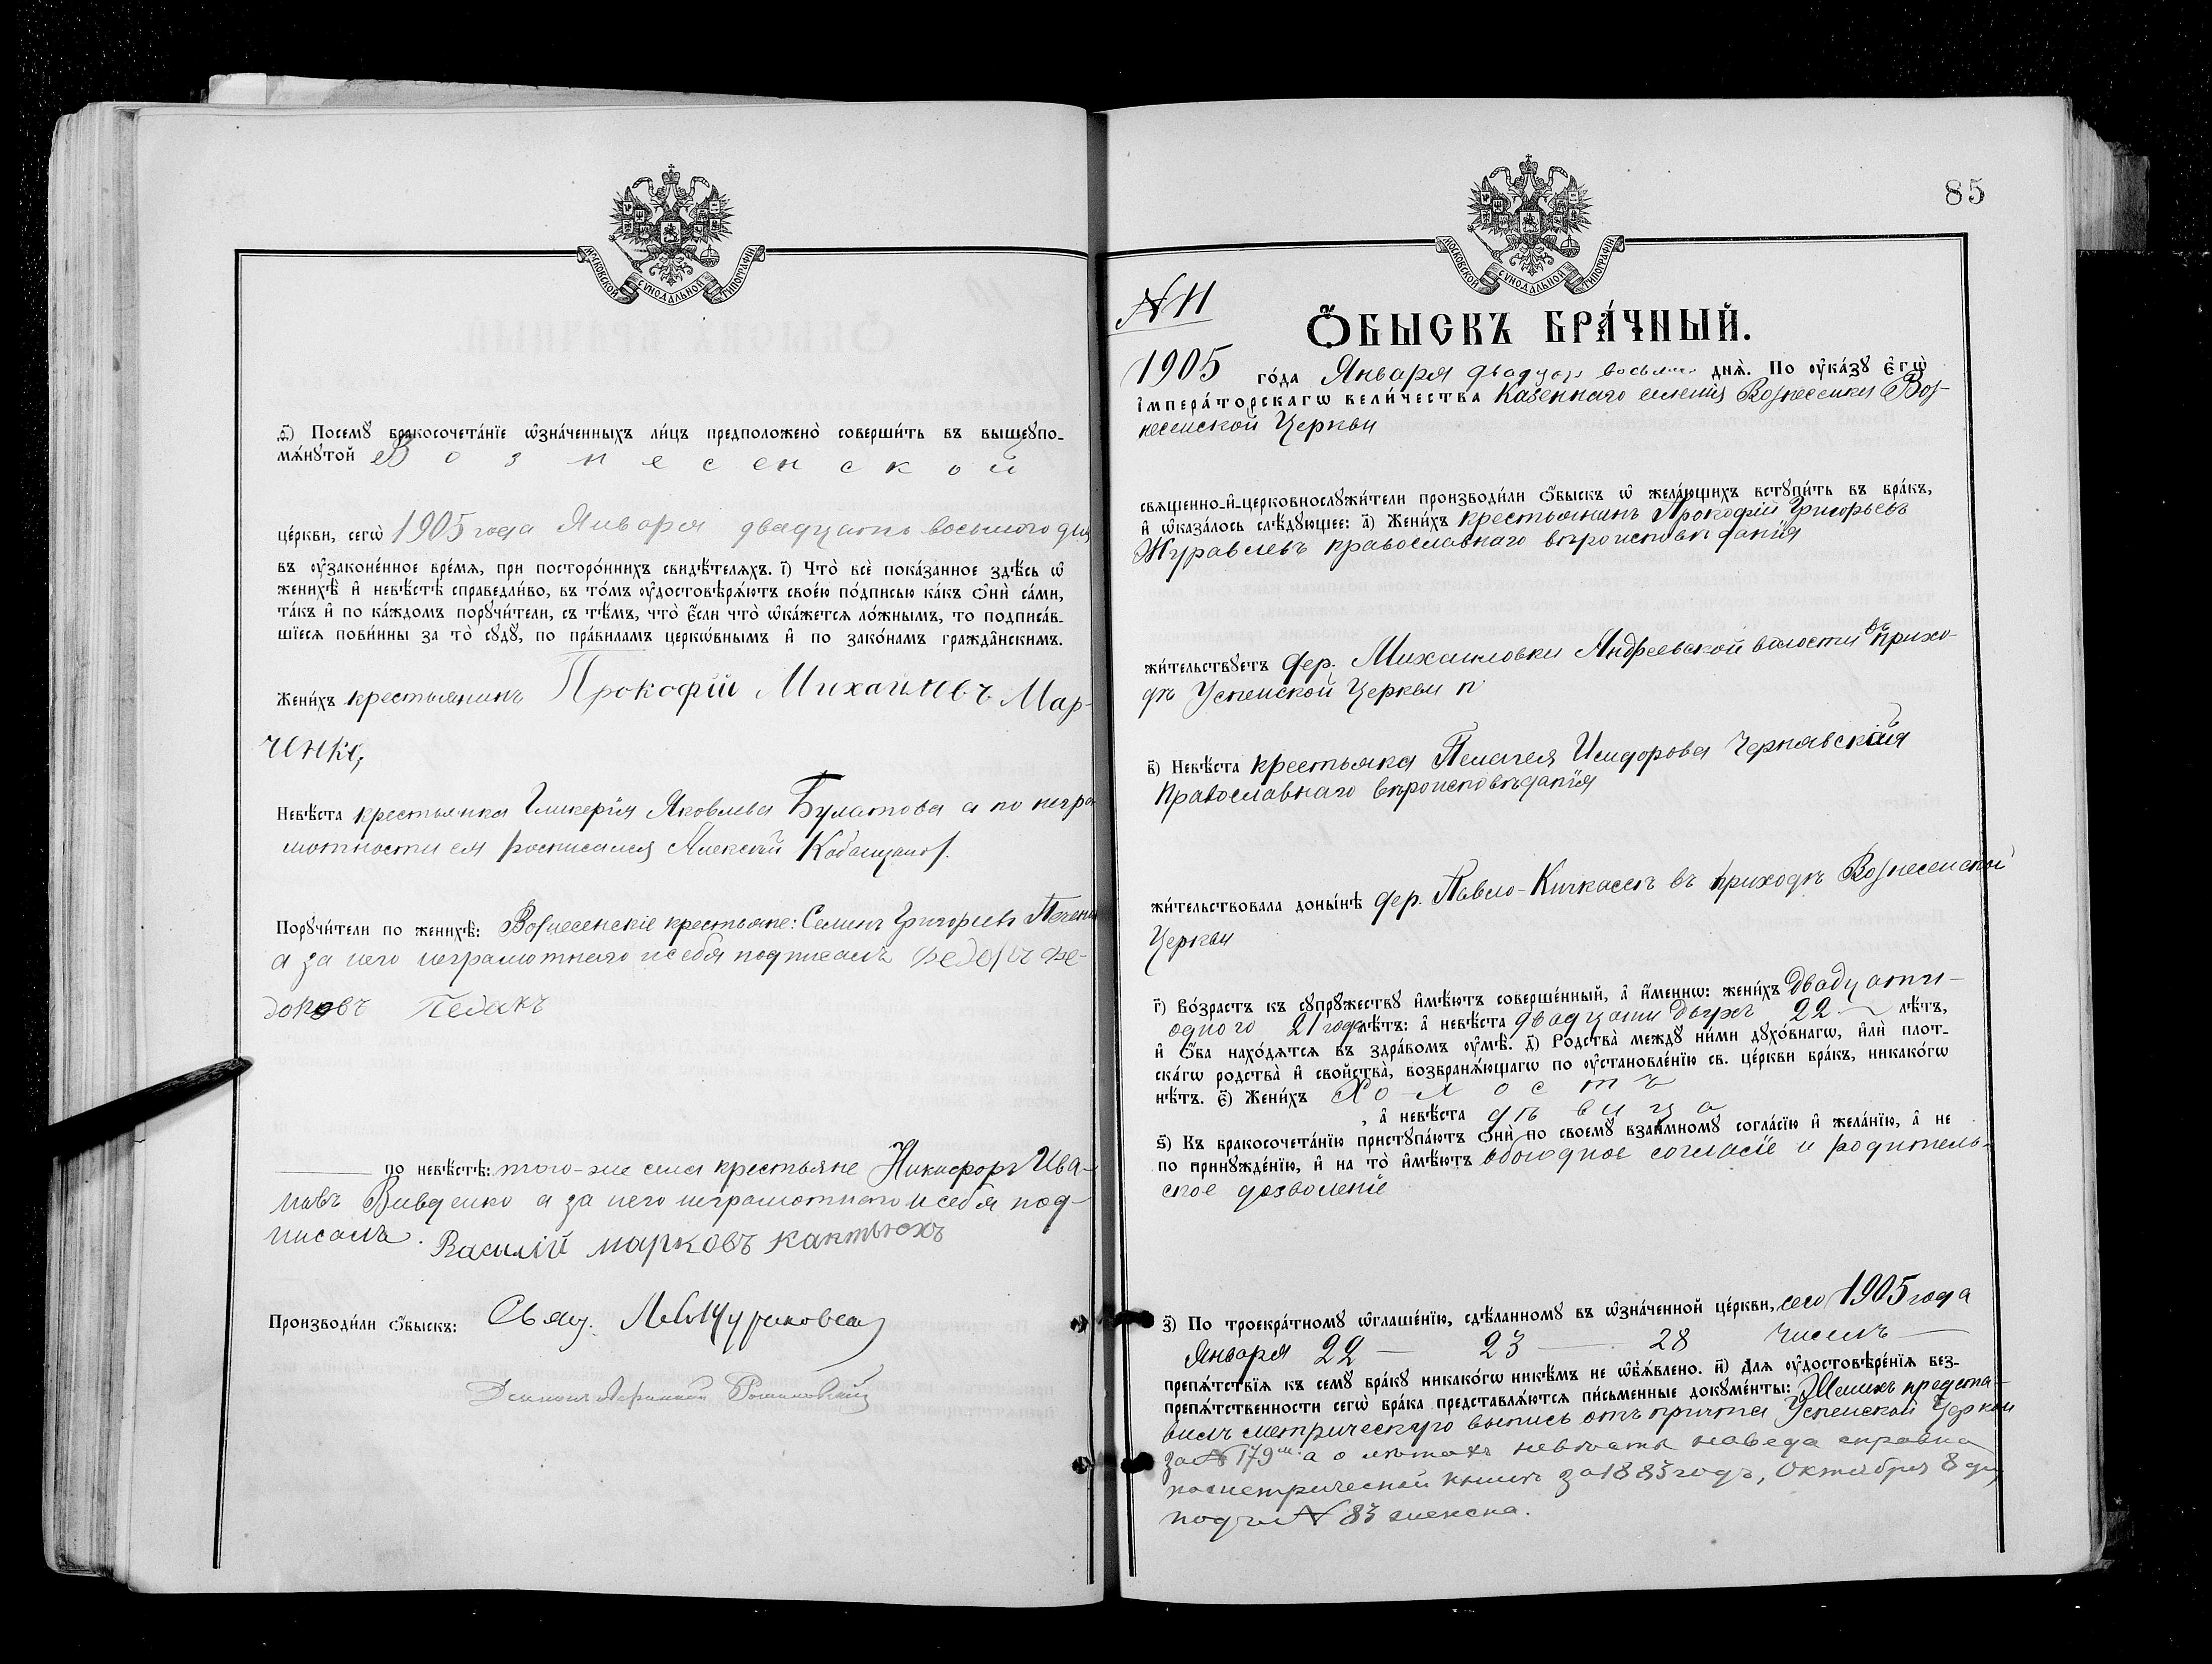 МОСКОВСКОЙ СУНОДАЛЬНОЙ ТИПОГРАФІИ
д҃) Посемꙋ̀ бракосочета́нїе ѡ҆зна́ченныхъ ли́цъ предположено̀ соверши́ть въ вышеꙋпо-
мѧ́нꙋтой Вознесенской
це́ркви, сегѡ̀ 1905 года Января двадцать восьмого дня
въ ᲂу҆законе́нное вре́мѧ, при посторо́ннихъ свидѣ́телѧхъ. і҃) Что̀ всѐ пока́занное здѣ́сь ѡ҆
женихѣ̀ и҆ невѣ́стѣ справедли́во, въ то́мъ ᲂу҆достовѣрѧ́ютъ свое́ю по́дписью ка́къ ѻ҆нѝ са́ми,
та́къ и҆ по ка́ждомъ порꙋчи́тели, съ тѣ́мъ, что̀ є҆́сли что̀ ѡ҆ка́жетсѧ ло́жнымъ, то подписа́в-
шїесѧ пови́нны за то̀ сꙋдꙋ̀, по пра́виламъ церкѡ́внымъ и҆ по зако́намъ гражда́нскимъ.
Жени́хъ крестьянинъ Прокофій Михаиловъ Мар-
ченко,
Невѣ́ста крестьянка Гликерія Яковлева Булатова а по негра
мотности ея росписался Алексѣй
Порꙋчи́тели по женихѣ̀: Вознесенскіе крестьяне: Семенъ Григорьевъ
а за него неграмотнаго и себя подписалъ Федоръ Фе-
доровъ Педакъ
по невѣ́стѣ: того-же села крестьяне Никифоръ Ива-
новъ Вивденко а за него неграмотнаго и себя под-
писалъ. Василій Марковъ
Производи́ли ѻ҆́быскъ: Свящ.
85
МОСКОВСКОЙ СУНОДАЛЬНОЙ ТИПОГРАФІИ
№ 11
Ѻ҆́БЫСКЪ БРА́ЧНЫЙ.
1905 го́да Января двадцать восьмого днѧ̀. По ᲂу҆ка́зꙋ Є҆гѡ̀
І҆мпера́торскагѡ вели́чества Казеннаго селенія Вознесенки Воз-
несенской Церкви
свѧщенно-и҆-церковнослꙋжи́тели производи́ли ѻ҆́быскъ ѡ҆ жела́ющихъ встꙋпи́ть въ бра́къ,
и҆ ѡ҆каза́лось слѣ́дꙋющее: а҃) Жени́хъ крестьянинъ Прокофій Григорьевъ
Журавлевъ православнаго вѣроисповѣданія
жи́тельствꙋетъ дер. Михаиловки Андреевской волости въ прихо-
дѣ Успенской Церкви
в҃) Невѣ́ста крестьянка Пелагея Исидорова Чернявская
Православнаго вѣроисповѣданія
жи́тельствовала доны́нѣ дер. Павло-Кичкассъ въ приходѣ Вознесенской
Церкви
г҃) Во́зрастъ къ сꙋпрꙋ́жествꙋ и҆мѣ́ютъ соверше́нный, а҆ и҆́меннѡ: жени́хъ двадцати-
одного 21 года лѣ́тъ: а҆ невѣ́ста двадцати двухъ 22 лѣ́тъ,
и҆ ѻ҆́ба нахо́дѧтсѧ въ здра́вомъ ᲂу҆мѣ̀. д҃) Родства̀ междꙋ̀ ни́ми дꙋхо́внагѡ, и҆лѝ плот-
ска́гѡ родства̀ и҆ свойства̀, возбранѧ́ющагѡ по ᲂу҆становле́нїю св. це́ркви бра́къ, никако́гѡ
нѣ́тъ. є҃) Жени́хъ Холостъ
, а҆ невѣ́ста дѣвица
ѕ҃) Къ бракосочета́нїю пристꙋпа́ютъ ѻ҆нѝ по своемꙋ̀ взаи́мномꙋ согла́сїю и҆ жела́нїю, а҆ не
по принꙋжде́нїю, и҆ на то̀ и҆мѣ́ютъ обоюдное согласіе и родитель-
ское дозволеніе
з҃) По троекра́тномꙋ ѡ҆глаше́нїю, сдѣ́ланномꙋ въ ѡ҆зна́ченной це́ркви, сего 1905 года
Января 22 — 23 — 28 чиселъ —
препѧ́тствїѧ къ семꙋ̀ бра́кꙋ никако́гѡ никѣ́мъ не ѡ҆б̾ѧ́влено. и҃) Длѧ ᲂу҆достовѣре́нїѧ без-
препѧ́тственности сегѡ̀ бра́ка представлѧ́ютсѧ пи́сьменные докꙋме́нты: Женихъ предста-
вилъ метрическую выпись отъ причта Успенской Церкви
за № 179 а о лѣтахъ невѣсты наведа справка
по метрической книгѣ за 1883 годъ, Октября 8 дня
подъ № 83 женска.